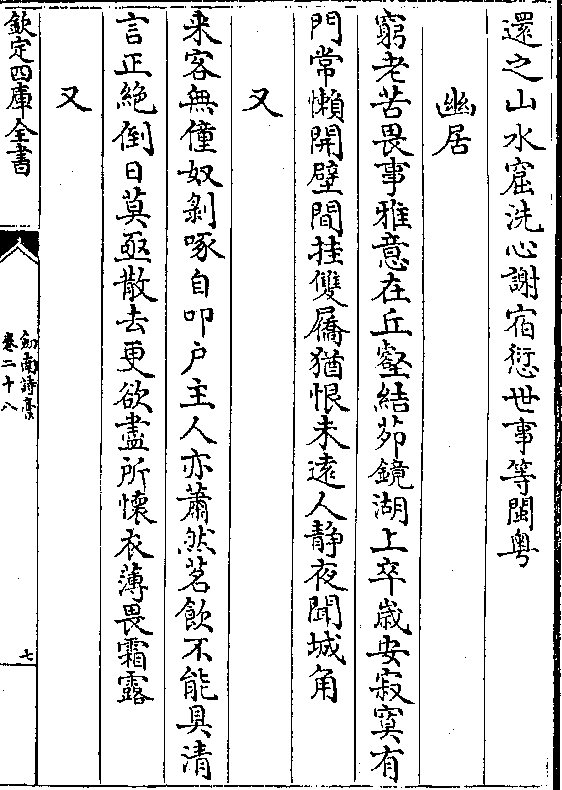 還之山水窟洗心謝宿愆世事等閩粤
幽居
窮老苦畏事雅意在丘壑結茆鏡湖上卒歳安寂寞有
門常懶開壁間挂雙屩猶恨未逺人静夜聞城角
又
来客無僮奴剝啄自叩户主人亦蕭然茗飲不能具清
言正絶倒日莫亟散去更欲盡所懷衣薄畏霜露
又
欽定四庫全書
劍南詩稾
卷二十八
七